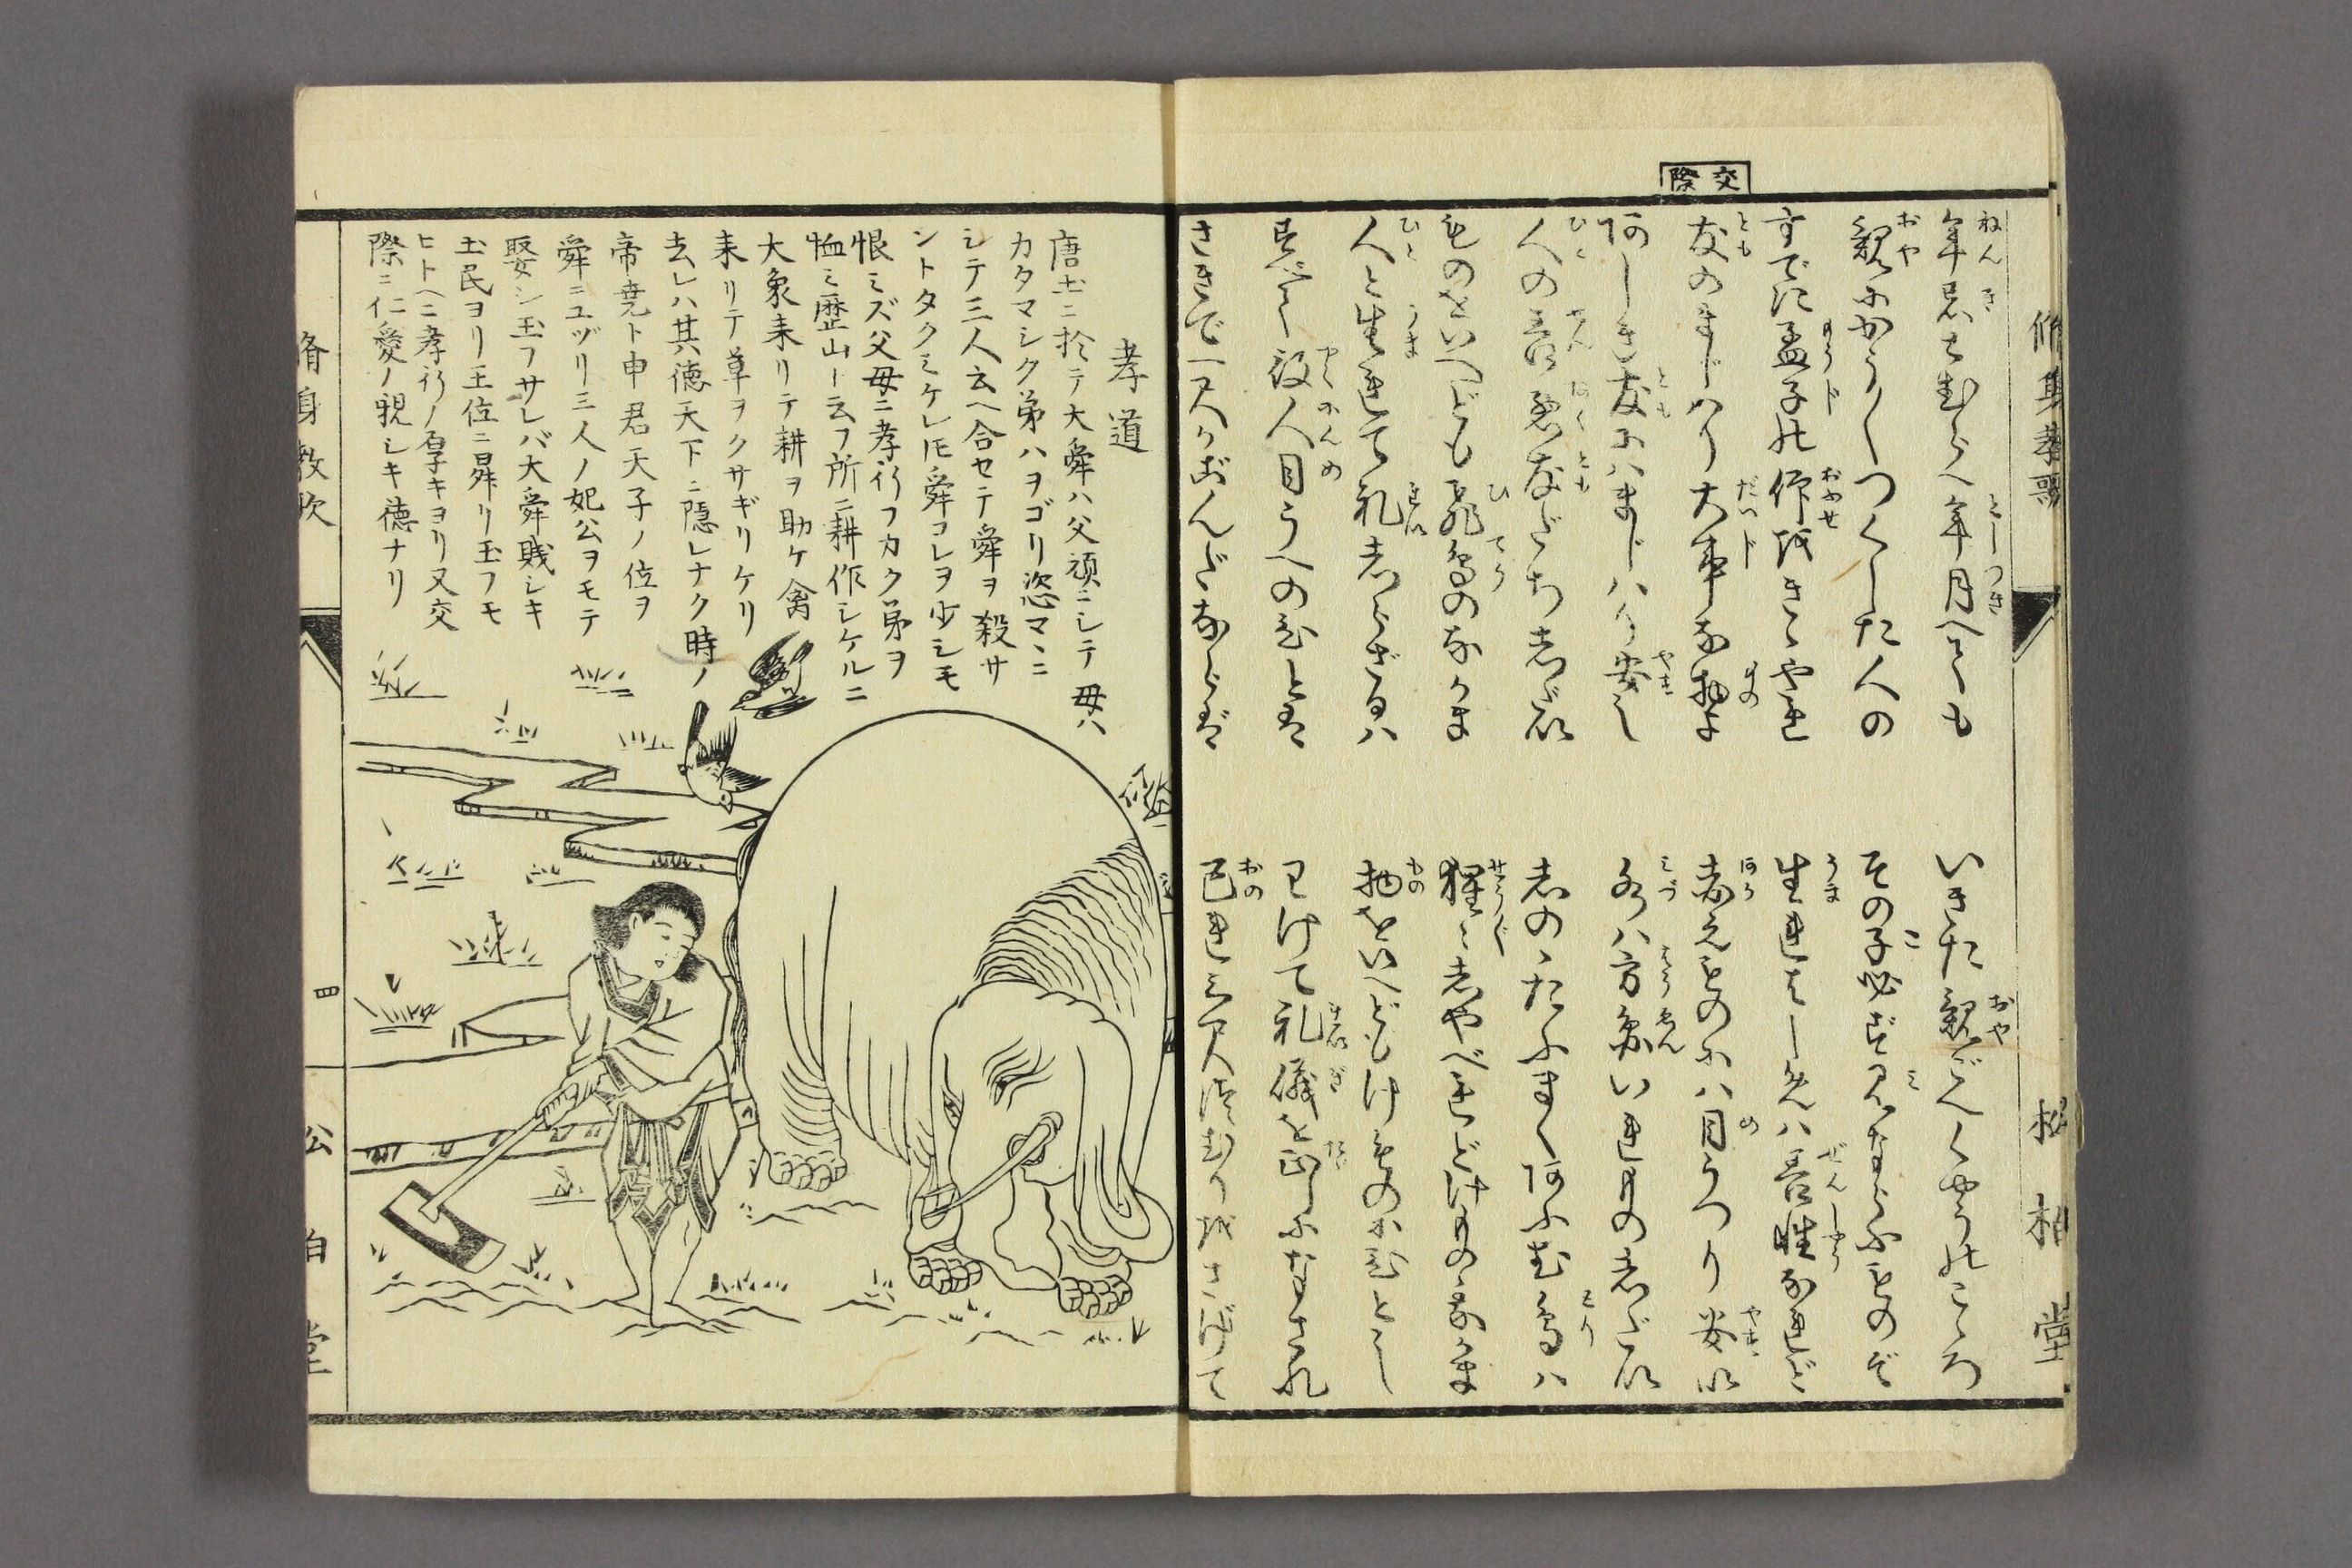 修身教歌
松柏堂
交際
年忌とむらへ年月へても
いきた親ごへくやうのこゝろ
親にかう〳〵つくした人の
その子必ず見ならふものぞ
すでに孟子の仰をきゝやれ
生れはじめハ善性なれど
友のまじハり大事な物よ
ものにハ目うつり安い
あしき友にハまじハり安し
水ハ方円いれもの志だい
人の善悪友だち志だい
あふむ鳥ハ
ものをいへども飛鳥のなかま
猩〻志やべれどけものゝなかま
人と生れて礼志らざるハ
物をいへどもけものにひとし
役人目うへのひとは
わけて礼儀を正しふなされ
さきで一尺かゞんだならば
己れ三尺つむりをさげて
孝道
唐土ニ於テ大舜ハ父頑ニシテ母ハ
カタマシク弟ハヲゴリ恣マヽニ
シテ三人云ヘ合セテ舜ヲ殺サ
ントタクミケレ𪜈舜コレヲ少シモ
恨ミズ父母ニ孝行フカク弟ヲ
恤ミ歴山ト云フ所ニ耕作シケルニ
大象来リテ耕ヲ助ケ禽
来リテ草ヲクサギリケリ
去レハ其徳天下ニ隠レナク時ノ
帝尭ト申君天子ノ位ヲ
舜ニユヅリ三人ノ妃公ヲモテ
娶シ玉フサレバ大舜賎シキ
土民ヨリ王位ニ昇リ玉フモ
ヒトヘニ孝行ノ厚キヨリ又交
際ニ仁愛ノ親シキ徳ナリ
脩身教歌
四
松柏堂